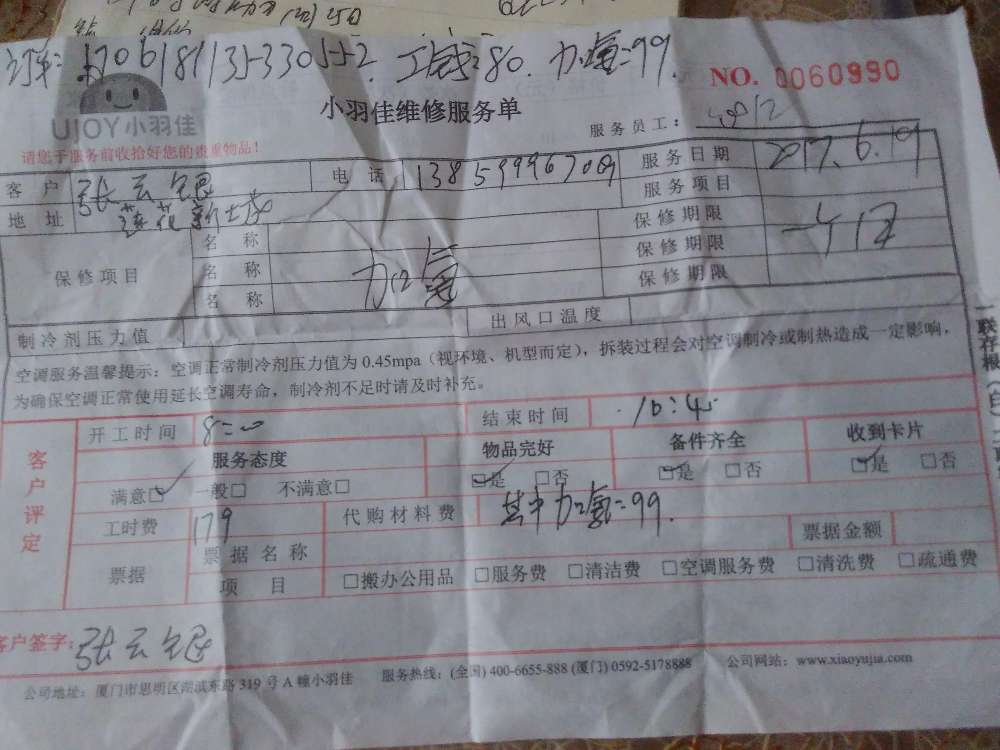 NO. 0060990
UJOY小羽佳
小羽佳维修服务单
服务员工：
请您于服务前收拾好您的贵重物品！
客 户 张云 电 话 服务日期 2017.6.19
地 址 莲花新城 服务项目
保修项目 名 称 加氟 保修期限 一个月
名 称 保修期限
名 称 保修期限
制冷剂压力值 出风口温度
空调服务温馨提示：空调正常制冷剂压力值为 0.45mpa（视环境、机型而定），拆装过程会对空调制冷或制热造成一定影响，
为确保空调正常使用延长空调寿命，制冷剂不足时请及时补充。
客户评定
开工时间 8:00 结束时间 10:45
服务态度 物品完好 备件齐全 收到卡片
满意□ 一般□ 不满意□ □是 □否 □是 □否 □是 □否
工时费 179 代购材料费 其中加氟=99.
票据 票据名称 票据金额
项 目 □搬办公用品 □服务费 □清洁费 □空调服务费 □清洗费 □疏通费
客户签字：张云
公司地址：厦门市思明区湖滨东路 319 号 A 幢小羽佳 服务热线：(全国) 400-6655-888 (厦门) 0592-5178888 公司网站：www.xiaoyujia.com